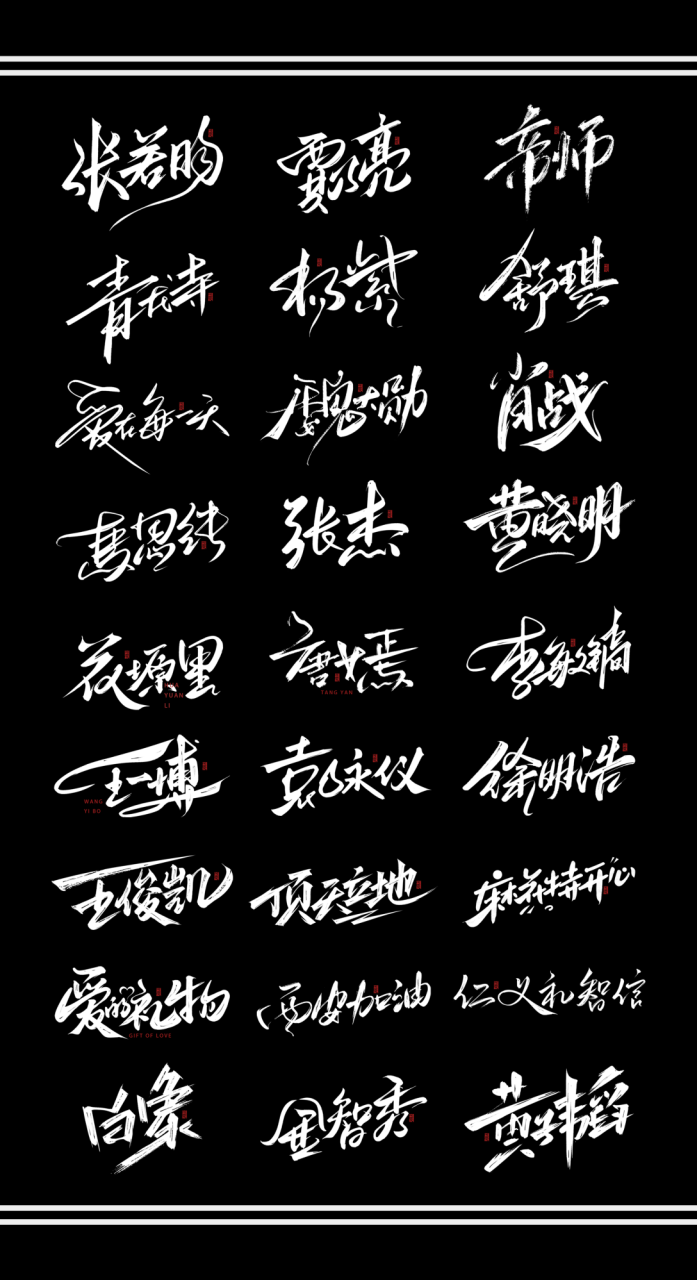 张若昀 贾乃亮 帝师
青龙寺 杨紫 舒琪
爱在每一天 魏大勋 肖战
马思纯 张杰 黄晓明
花塬里 唐艺焉 李敏镐
YUAN
LI
TANG YAN
王一博 袁咏仪 徐明浩
WANG
YI BO
王俊凯 顶天立地 麻花特开心
爱的礼物 西安加油 仁义礼智信
GIFT OF LOVE
白象 金智秀 黄韦韬